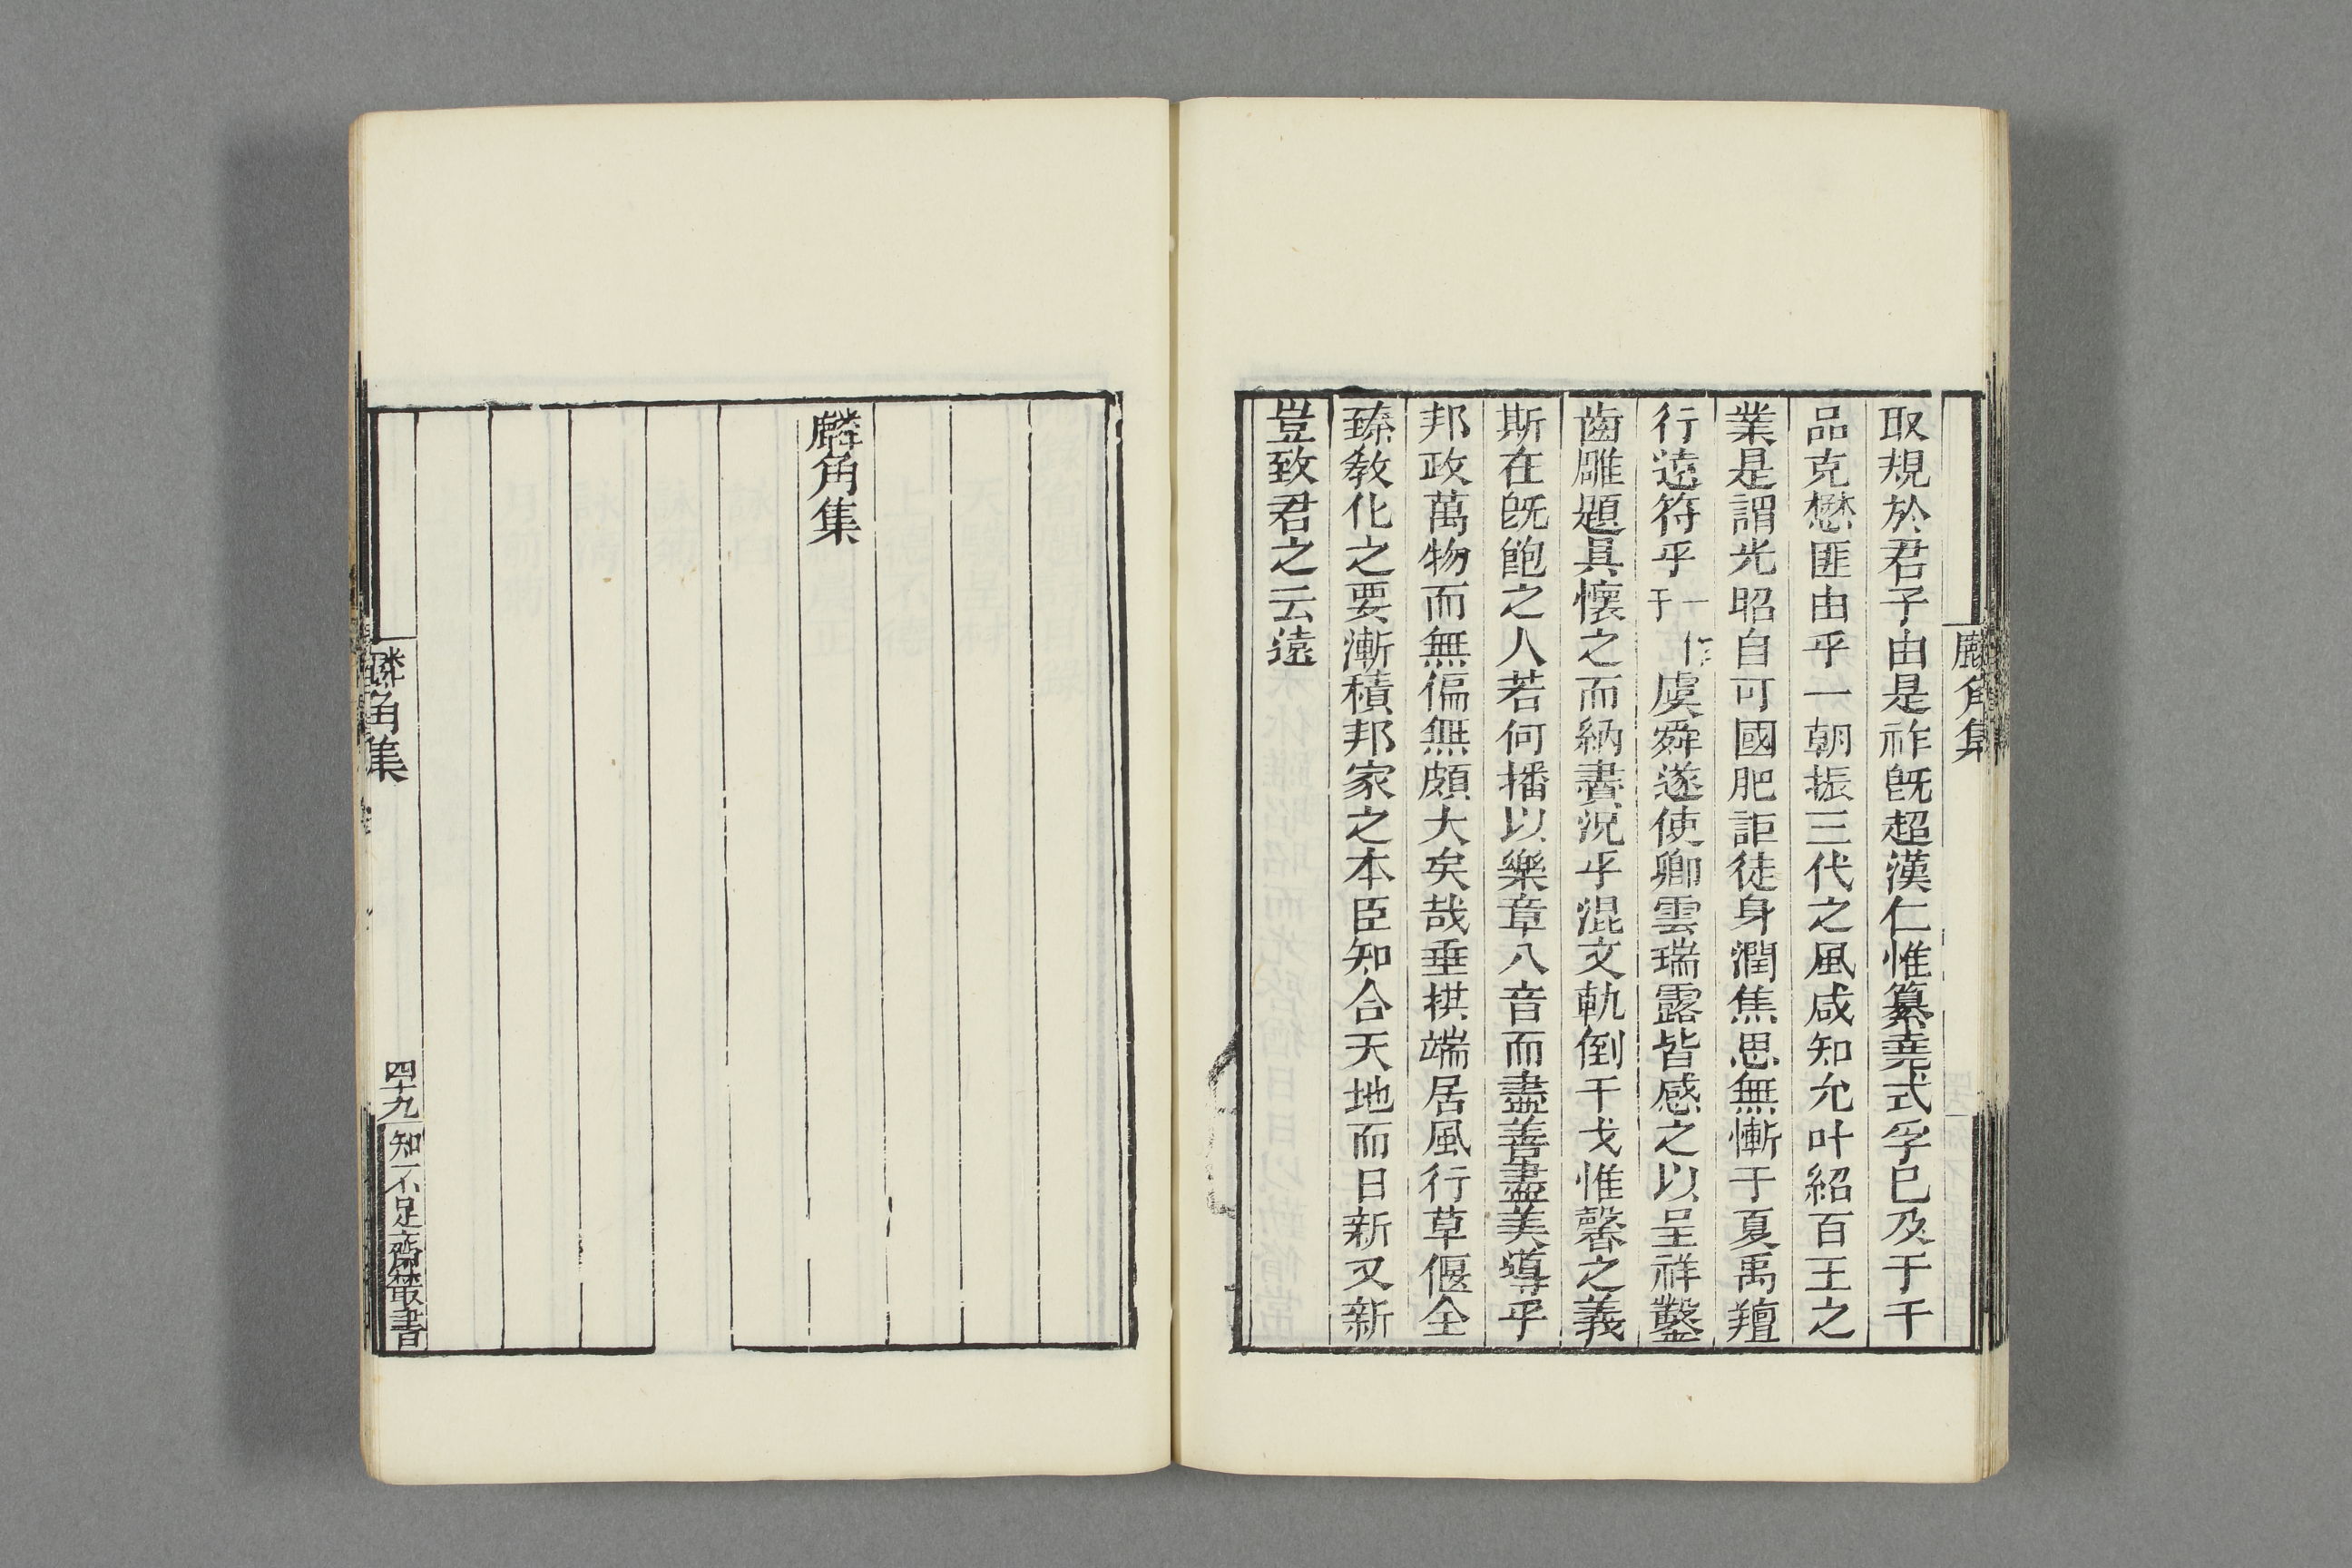 麟角集
取規於君子由是祚旣超漢仁惟纂堯式孚已及于千
品克懋匪由乎一朝振三代之風咸知允叶紹百王之
業是謂光昭自可國肥詎徒身潤焦思無慚于夏禹羶
行遠符乎一作于虞舜遂使卿雲瑞露皆感之以呈祥鑿
齒雕題具懷之而納賮況乎混文軌倒干戈惟馨之義
斯在旣飽之人若何播以樂章八音而盡善盡美導乎
邦政萬物而無偏無頗大矣哉垂拱端居風行草偃全
臻敎化之要漸積邦家之本臣知合天地而日新又新
豈致君之云遠
麟角集
麟角集
四十九
知不足齋叢書